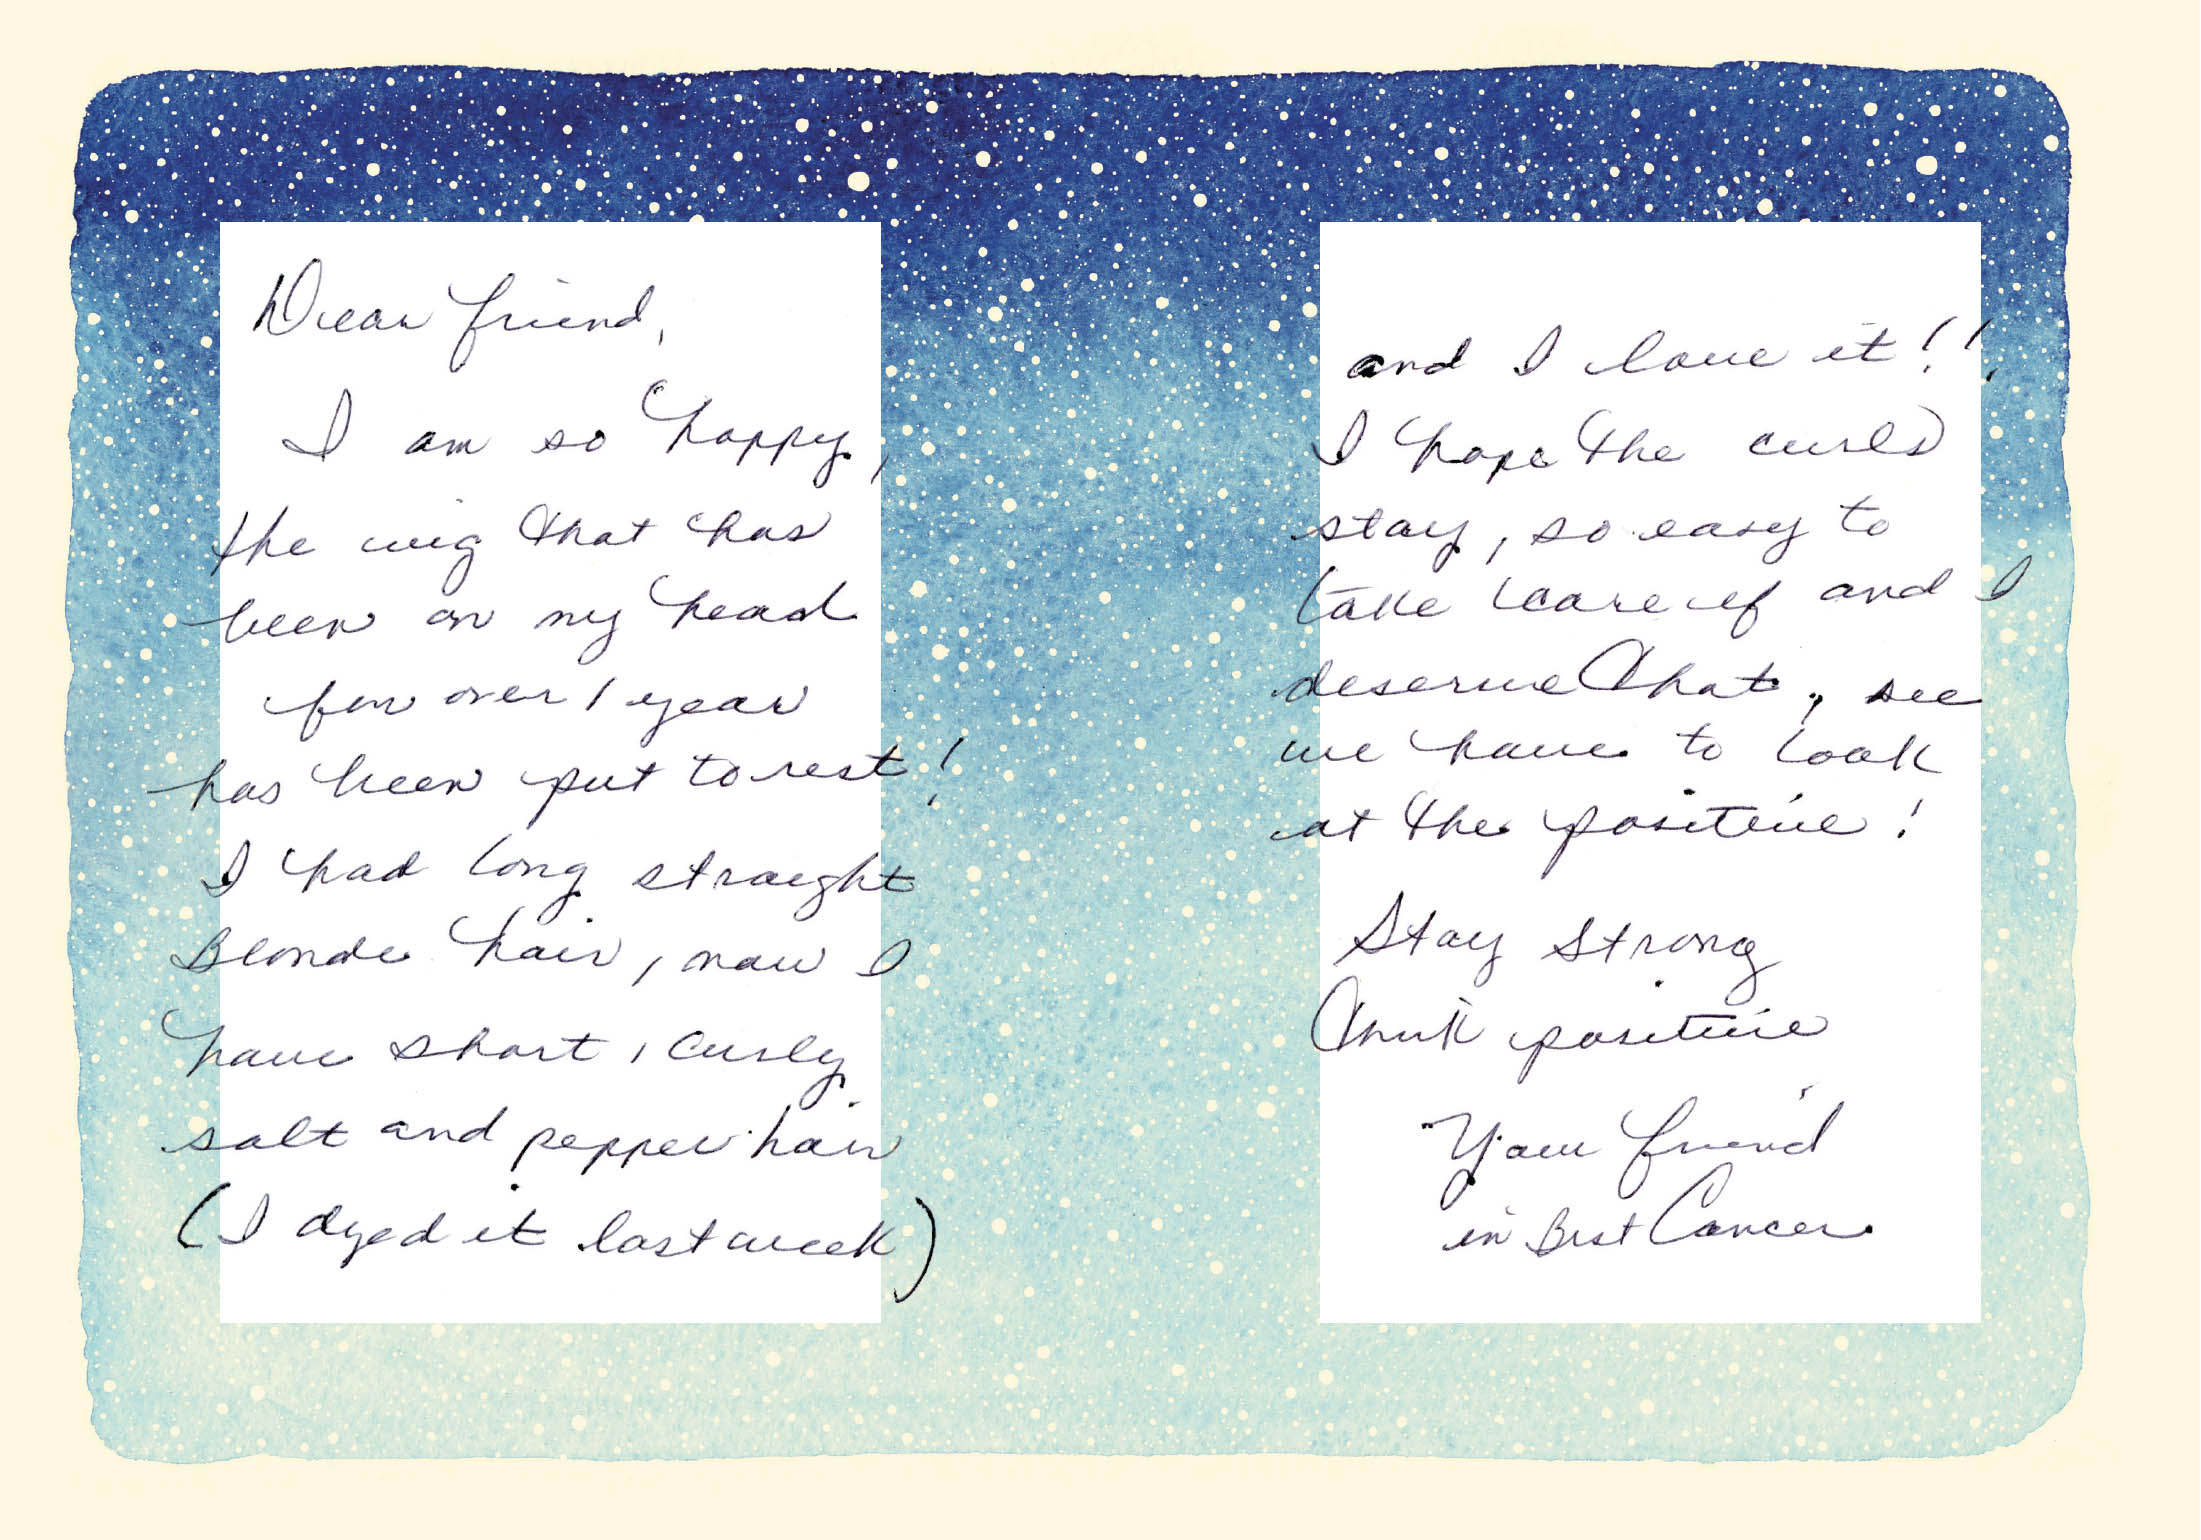 Dear friend,
I am so happy,
the wig that has
been on my head
for over 1 year
has been put to rest!
I had long straight
Blonde hair, now I
have short, curly
salt and pepper hair
(I dyed it last week)
and I love it!!
I hope the curls
stay, so easy to
take care of and I
deserve that, see
we have to look
at the positive!
Stay Strong
Think positive
Your friend
in Brst Cancer